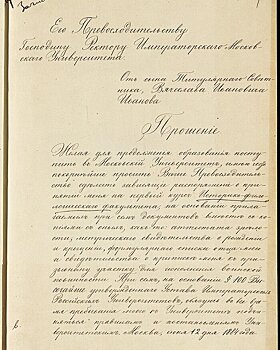 Его Превосходительству
Господину Ректору Императорскаго Москов-
скаго Университета.
Отъ сына Титулярнаго Совѣт-
ника, Вячеслава Ивановича
Иванова
Прошеніе
Желая для продолженія образованія посту-
пить въ Московскій Университетъ, имѣю честь
покорнѣйше просить Ваше Превосходитель-
ство сдѣлать зависящее распоряженіе о при-
нятіи меня на первый курсъ Историко-фило-
логическаго факультета на основаніи прила-
гаемыхъ при семъ документовъ вмѣстѣ съ ко-
піями съ оныхъ, какъ то: аттестата зрѣло-
сти, метрическаго свидѣтельства о рожденіи
и крещеніи, формулярнаго списка отца моего
и свидѣтельства о припискѣ меня къ при-
зывному участку для исполненія воинской
повинности. При семъ, на основаніи § 100 Вы-
сочайше утвержденнаго Устава Императорскихъ
Россійскихъ Университетовъ, обязуюсь во все вре-
мя пребыванія моего въ Университетѣ подчи-
няться правиламъ и постановленіямъ Уни-
верситетскимъ. Москва, іюня 12 дня 1884 года